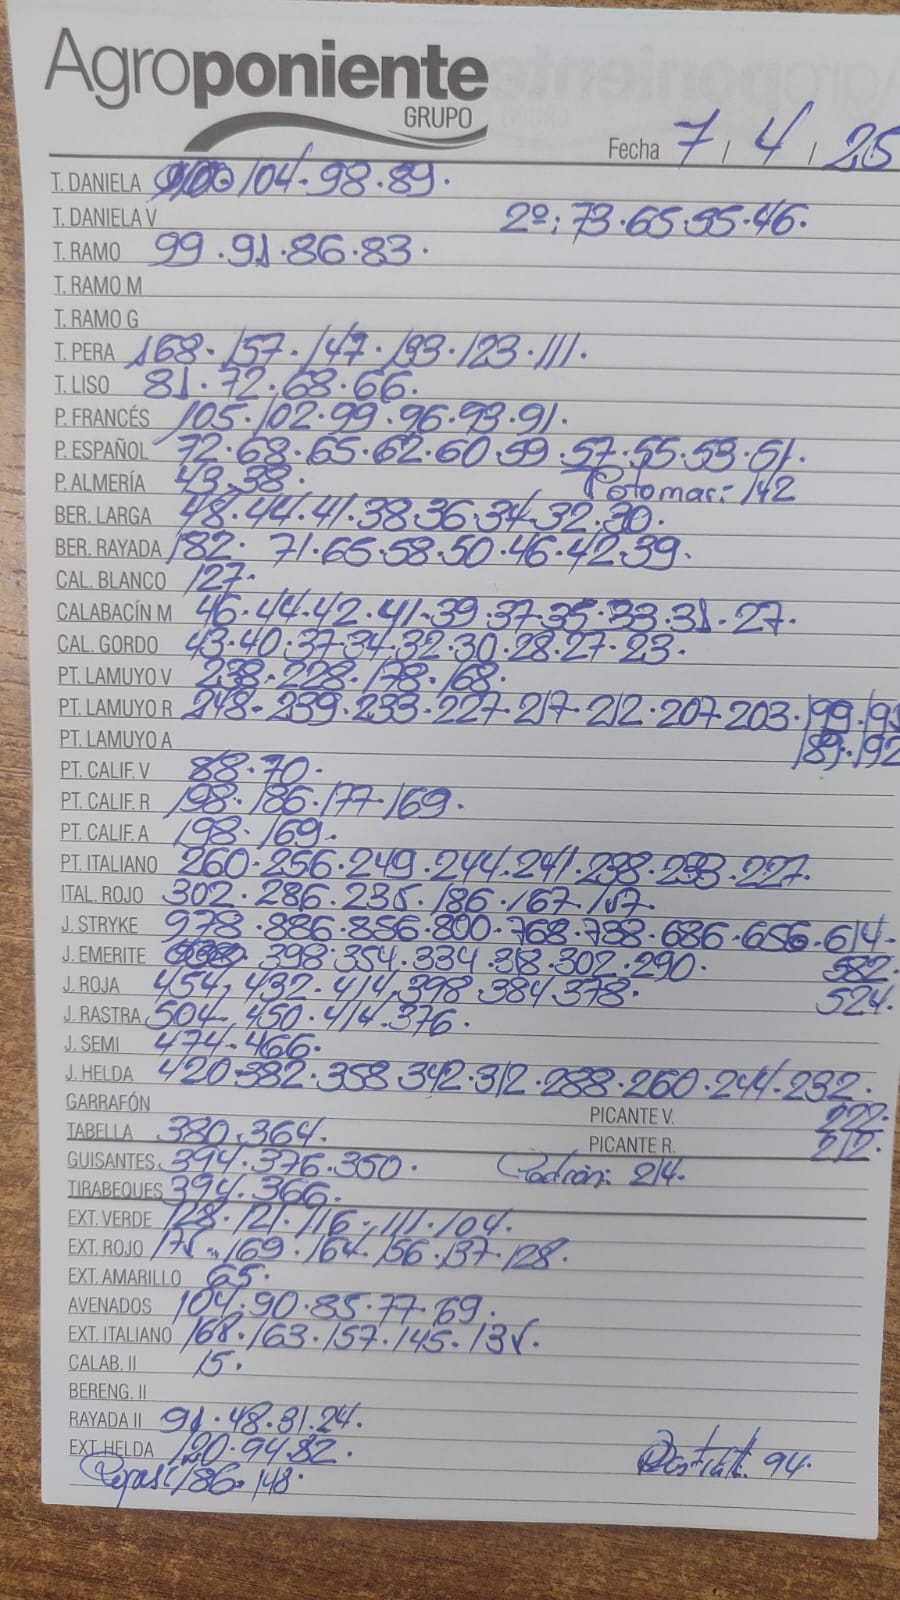 Agroponiente
GRUPO
Fecha 7 / 4 / 25
T. DANIELA 104. 98. 89.
T. DANELA V 2º: 73. 65. 55. 46.
T. RAMO 99. 91. 86. 83.
T. RAMO M
T. RAMO G
T. PERA 168. 157. 147. 133. 123. 111.
T. LISO 81. 72. 68. 66.
P. FRANCÉS 105. 102. 99. 96. 93. 91.
P. ESPAÑOL 72. 68. 65. 62. 60. 59. 57. 55. 53. 51.
P. ALMERÍA 43. 38. Potomac: 142
BER. LARGA 48. 44. 41. 38. 36. 34. 32. 30.
BER. RAYADA 182. 71. 65. 58. 50. 46. 42. 39.
CAL. BLANCO 127.
CALABACÍN M 46. 44. 42. 41. 39. 37. 35. 33. 31. 27.
CAL. GORDO 43. 40. 37. 34. 32. 30. 28. 27. 23.
PT. LAMUYO V 238. 228. 178. 168.
PT. LAMUYO R 248. 239. 233. 227. 217. 212. 207. 203. 199.
PT. LAMUYO A 189. 192
PT. CALIF. V 88. 70.
PT. CALIF. R 198. 186. 177. 169.
PT. CALIF. A 198. 169.
PT. ITALIANO 260. 256. 249. 244. 241. 238. 233. 227.
ITAL. ROJO 302. 286. 235. 186. 167. 157.
J. STRYKE 978. 886. 856. 800. 768. 738. 686. 656. 614.
J. EMERITE 398. 354. 334. 318. 302. 290. 582.
J. ROJA 454. 432. 414. 398. 384. 378. 524.
J. RASTRA 504. 450. 414. 376.
J. SEMI 474. 466.
J. HELDA 420. 382. 358. 342. 312. 288. 260. 244. 232.
GARRAFÓN PICANTE V. 222.
TABELLA 380. 364. PICANTE R. 212.
GUISANTES 394. 376. 350. Padrón: 214.
TIRABEQUES 394. 366.
EXT. VERDE 128. 121. 116. 111. 104.
EXT. ROJO 175. 169. 164. 156. 137. 128.
EXT. AMARILLO 65.
AVENADOS 104. 90. 85. 77. 69.
EXT. ITALIANO 168. 163. 157. 145. 135.
CALAB. II 15.
BERENG. II
RAYADA II 91. 48. 31. 24.
EXT. HELDA 120. 94. 82. 94.
186. 148.